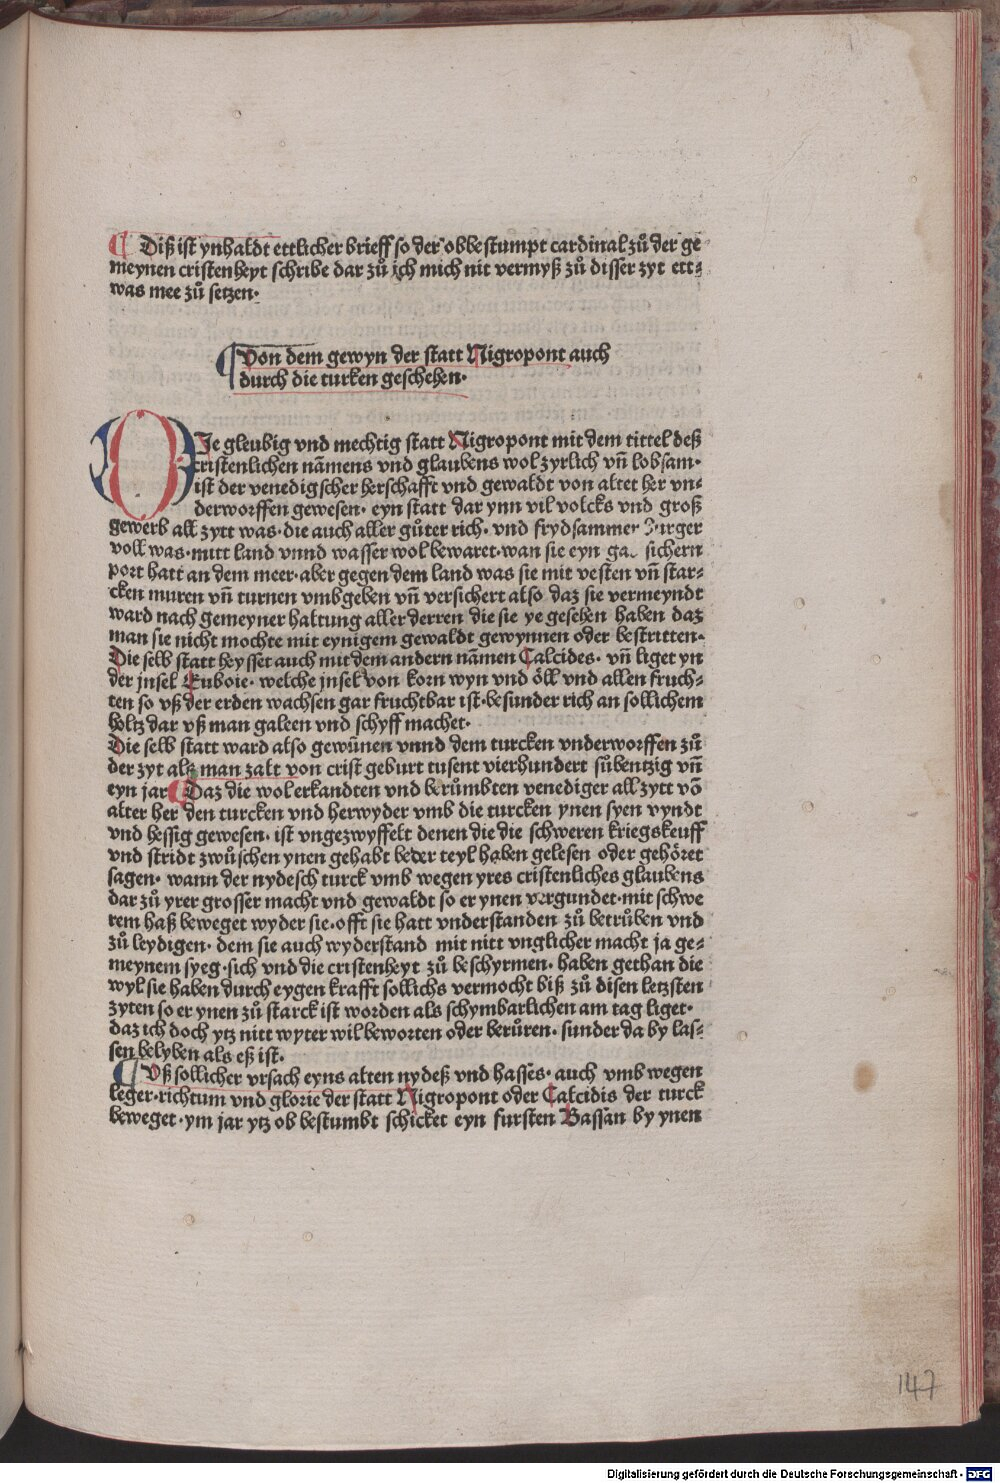 ¶ Diß ist ynhaldt ettlicher brieff so der obbestumpt cardinal zů der ge
meynen cristenheyt schribe dar zů ich mich nit vermyß zů disser zyt ett⸗
was mee zů setzen·
¶ Von dem gewyn der statt Nigropont auch
durch die turken geschehen·
DIe gleubig vnd mechtig statt Nigropont mit dem tittel deß
cristenlichen nāmens vnd glaubens wol zyrlich vn̄ lobsam·
ist der venedigscher herschafft vnd gewaldt von altet her vn⸗
derworffen gewesen· eyn statt dar ynn vil volcks vnd groß
gewerb all zytt was· die auch aller gůter rich· vnd frydsammer burger
voll was· mitt land vnnd wasser wol bewaret· wan sie eyn sichern
port hatt an dem meer· aber gegen dem land was sie mit vesten vn̄ star⸗
cken muren vn̄ turnen vmbgeben vn̄ versichert also daz sie vermeyndt
ward nach gemeyner haltung aller derren die sie ye gesehen haben daz
man sie nicht mochte mit eynigem gewaldt gewynnen oder bestritten·
Die selb statt heysset auch mit dem andern nāmen Calcides· vn̄ liget yn
der jnsel Euboie· welche jnsel von korn wyn vnd öll vnd allen fruch⸗
ten so vß der erden wachsen gar fruchtbar ist· besunder rich an sollichem
holtz dar vß man galeen vnd schyff machet·
Die selb statt ward also gewūnen vnnd dem turcken vnderworffen zů
der zyt als man zalt von crist geburt tusent vierhundert sübentzig vn̄
eyn jar ¶ Daz die wol erkandten vnd berůmbten venediger all zytt vō
alter her den turcken vnd herwyder vmb die turcken ynen syen vyndt
vnd hessig gewesen· ist vngezwyffelt denen die die schweren kriegskeuff
vnd stridt zwüschen ynen gehabt beder teyl haben gelesen oder gehöret
sagen· wann der nydesch turck vmb wegen yres cristenliches glaubens
dar zů yrer grosser macht vnd gewaldt so er ynen vergundet· mit schwe
rem haß beweget wyder sie· offt sie hatt vnderstanden zů betrůben vnd
zů leydigen· dem sie auch wyderstand mit nitt vnglicher macht ja ge⸗
meynem syeg· sich vnd die cristenheyt zů beschyrmen· haben gethan die
wyl sie haben durch eygen krafft sollichs vermocht biß zů disen letzsten
zyten so er ynen zů starck ist worden als schymbarlichen am tag liget·
daz ich doch ytz nitt wyter wil beworten oder berůren· sunder da by las⸗
sen belyben als eß ist·
¶ Vß sollicher vrsach eyns alten nydeß vnd hasses· auch vmb wegen
leger· richtum vnd glorie der statt Nigropont oder Calcidis der turck
beweget· ym jar ytz ob bestumbt schicket eyn fursten Bassan by ynen
147
Digitalisierung gefördert durch die Deutsche Forschungsgemeinschaft - DFG